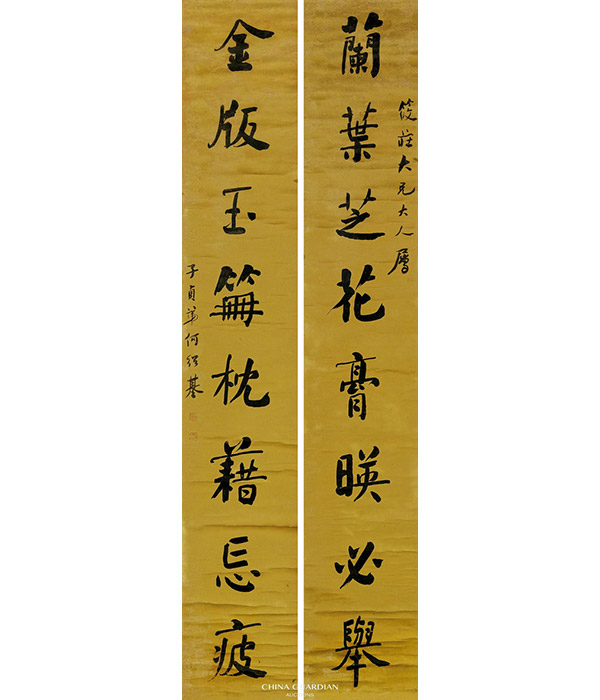 筱莊大兄大人屬
蘭葉芝花膏暎必舉
金版玉篇枕藉忘疲
子貞弟何紹基
CHINA GUARDIAN
AUCTIONS